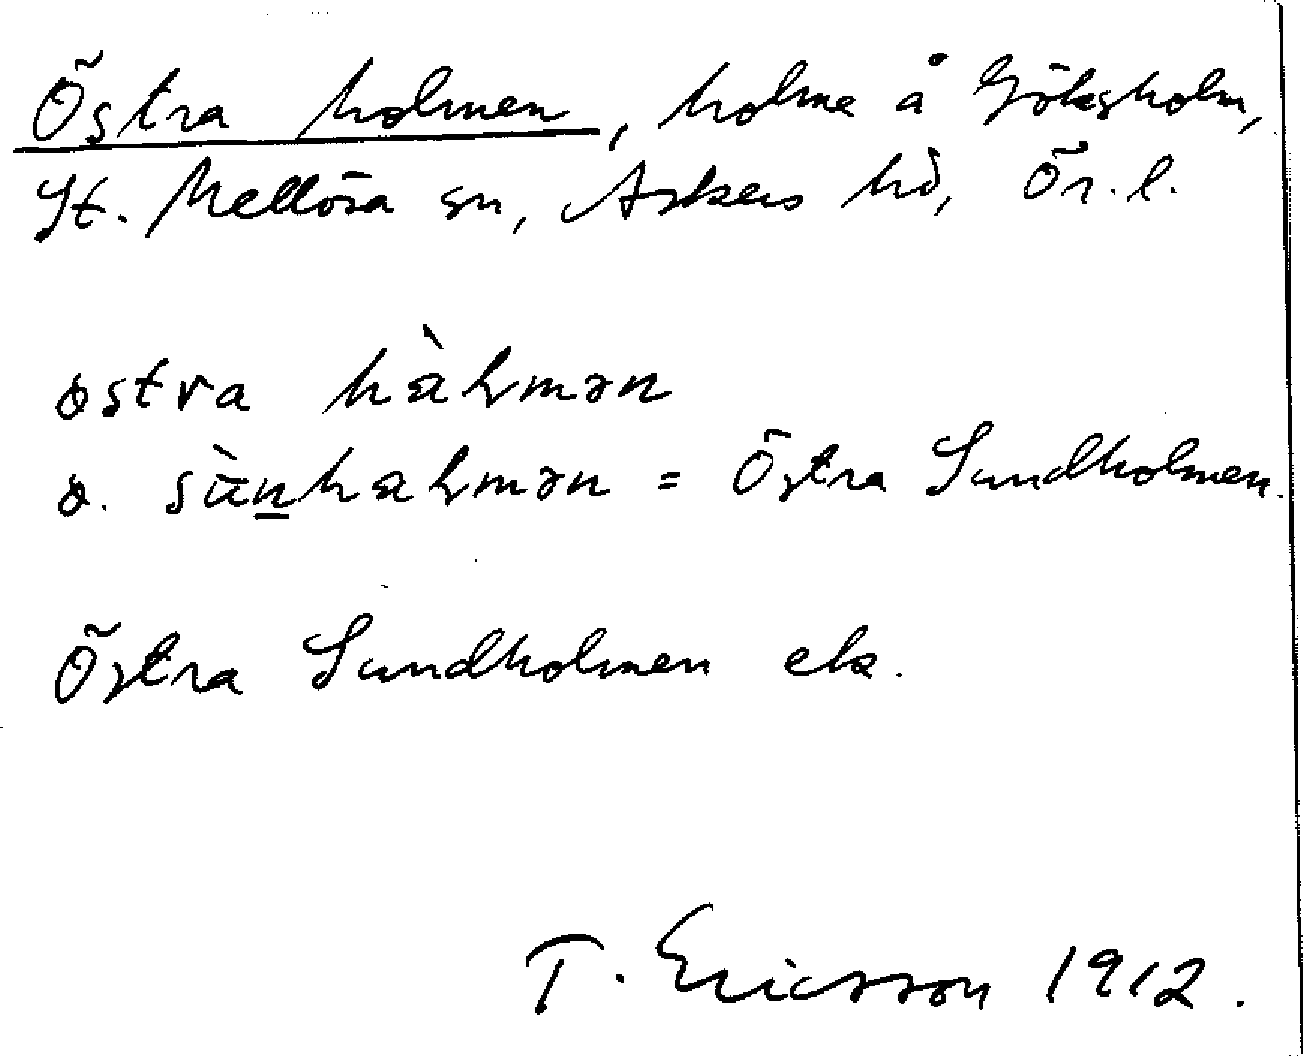 Östra holmen, holme å Göksholm,
St. Mellösa sn, Askers hd, Ör. l.
østra hàɬmən
ø. sùn̲haɬmən = Östra Sundholmen.
Östra Sundholmen ek.
T. Ericsson 1912.